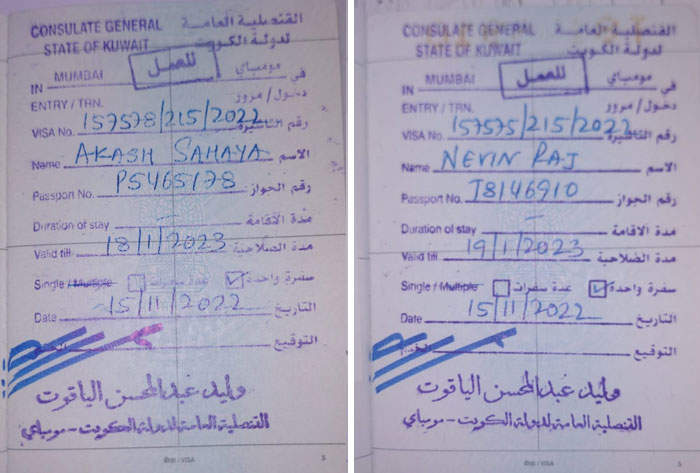 CONSULATE GENERAL القنصلية العامة
STATE OF KUWAIT لدولة الكويت
IN MUMBAI للعمل مومباي في
ENTRY / TRN. دخول / مرور
VISA No. 157578/215/2022 رقم التأشيرة
Name AKASH SAHAYA الاسم
Passport No. P5465178 رقم الجواز
Duration of stay — مدة الاقامة
Valid till 18/1/2023 مدة الصلاحية
Single / Multiple عدة سفرات سفرة واحدة
Date 15/11/2022 التاريخ
التوقيع
وليد عبدالمحسن الياقوت
القنصلية العامة لدولة الكويت - مومباي
/ VISA 5
CONSULATE GENERAL القنصلية العامة
STATE OF KUWAIT لدولة الكويت
IN MUMBAI للعمل مومباي في
ENTRY / TRN. دخول / مرور
VISA No. 157575/215/2022 رقم التأشيرة
Name NEVIN RAJ الاسم
Passport No. T8146910 رقم الجواز
Duration of stay — مدة الاقامة
Valid till 19/1/2023 مدة الصلاحية
Single / Multiple عدة سفرات سفرة واحدة
Date 15/11/2022 التاريخ
التوقيع
وليد عبدالمحسن الياقوت
القنصلية العامة لدولة الكويت - مومباي
/ VISA 5